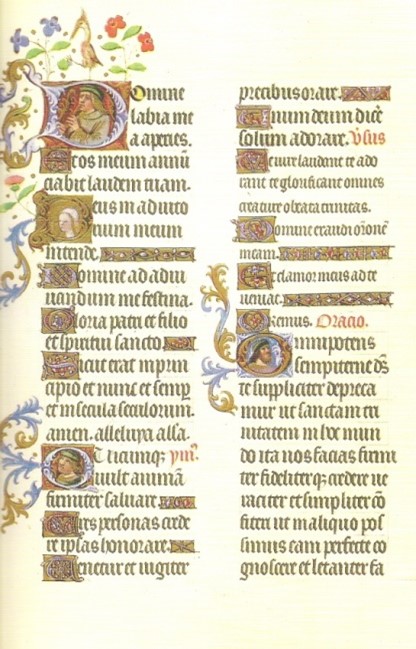 Domine
labia me
a aperies.
Et os meum annū
ciabit laudem tuam.
Deus in adiuto
rium meum
intende.
Domine ad adiu
uandum me festina.
Gloria patri et filio
et spiritui sancto.
Sicut erat in prin
cipio et nunc et semp
et in secula seculorum.
amen. alleluya alla.
Quicumq3 ym̄.
uult animā
firmiter saluare.
Tres personas crede
re ipsas honorare.
Venetur et iugiter
precibus orare.
Unum deum dicē
solum adorare. Vsus
Te iure laudant te ado
rant te glorificant omnes
creature o beata trinitas.
Domine exaudi or̄onē
meam.
Et clamor meus ad te
ueniat.
Oremus. Oracio.
Omnipotens
sempiterne dṡ
te suppliciter depreca
mur ut sanctam tri
nitatem in hoc mun
do ita nos facias firmi
ter fideliterq3 credere ue
raciter et simpliciter cō
fiteri ut in aliquo pos
simus eam perfecte co
gnoscere et letanter fa